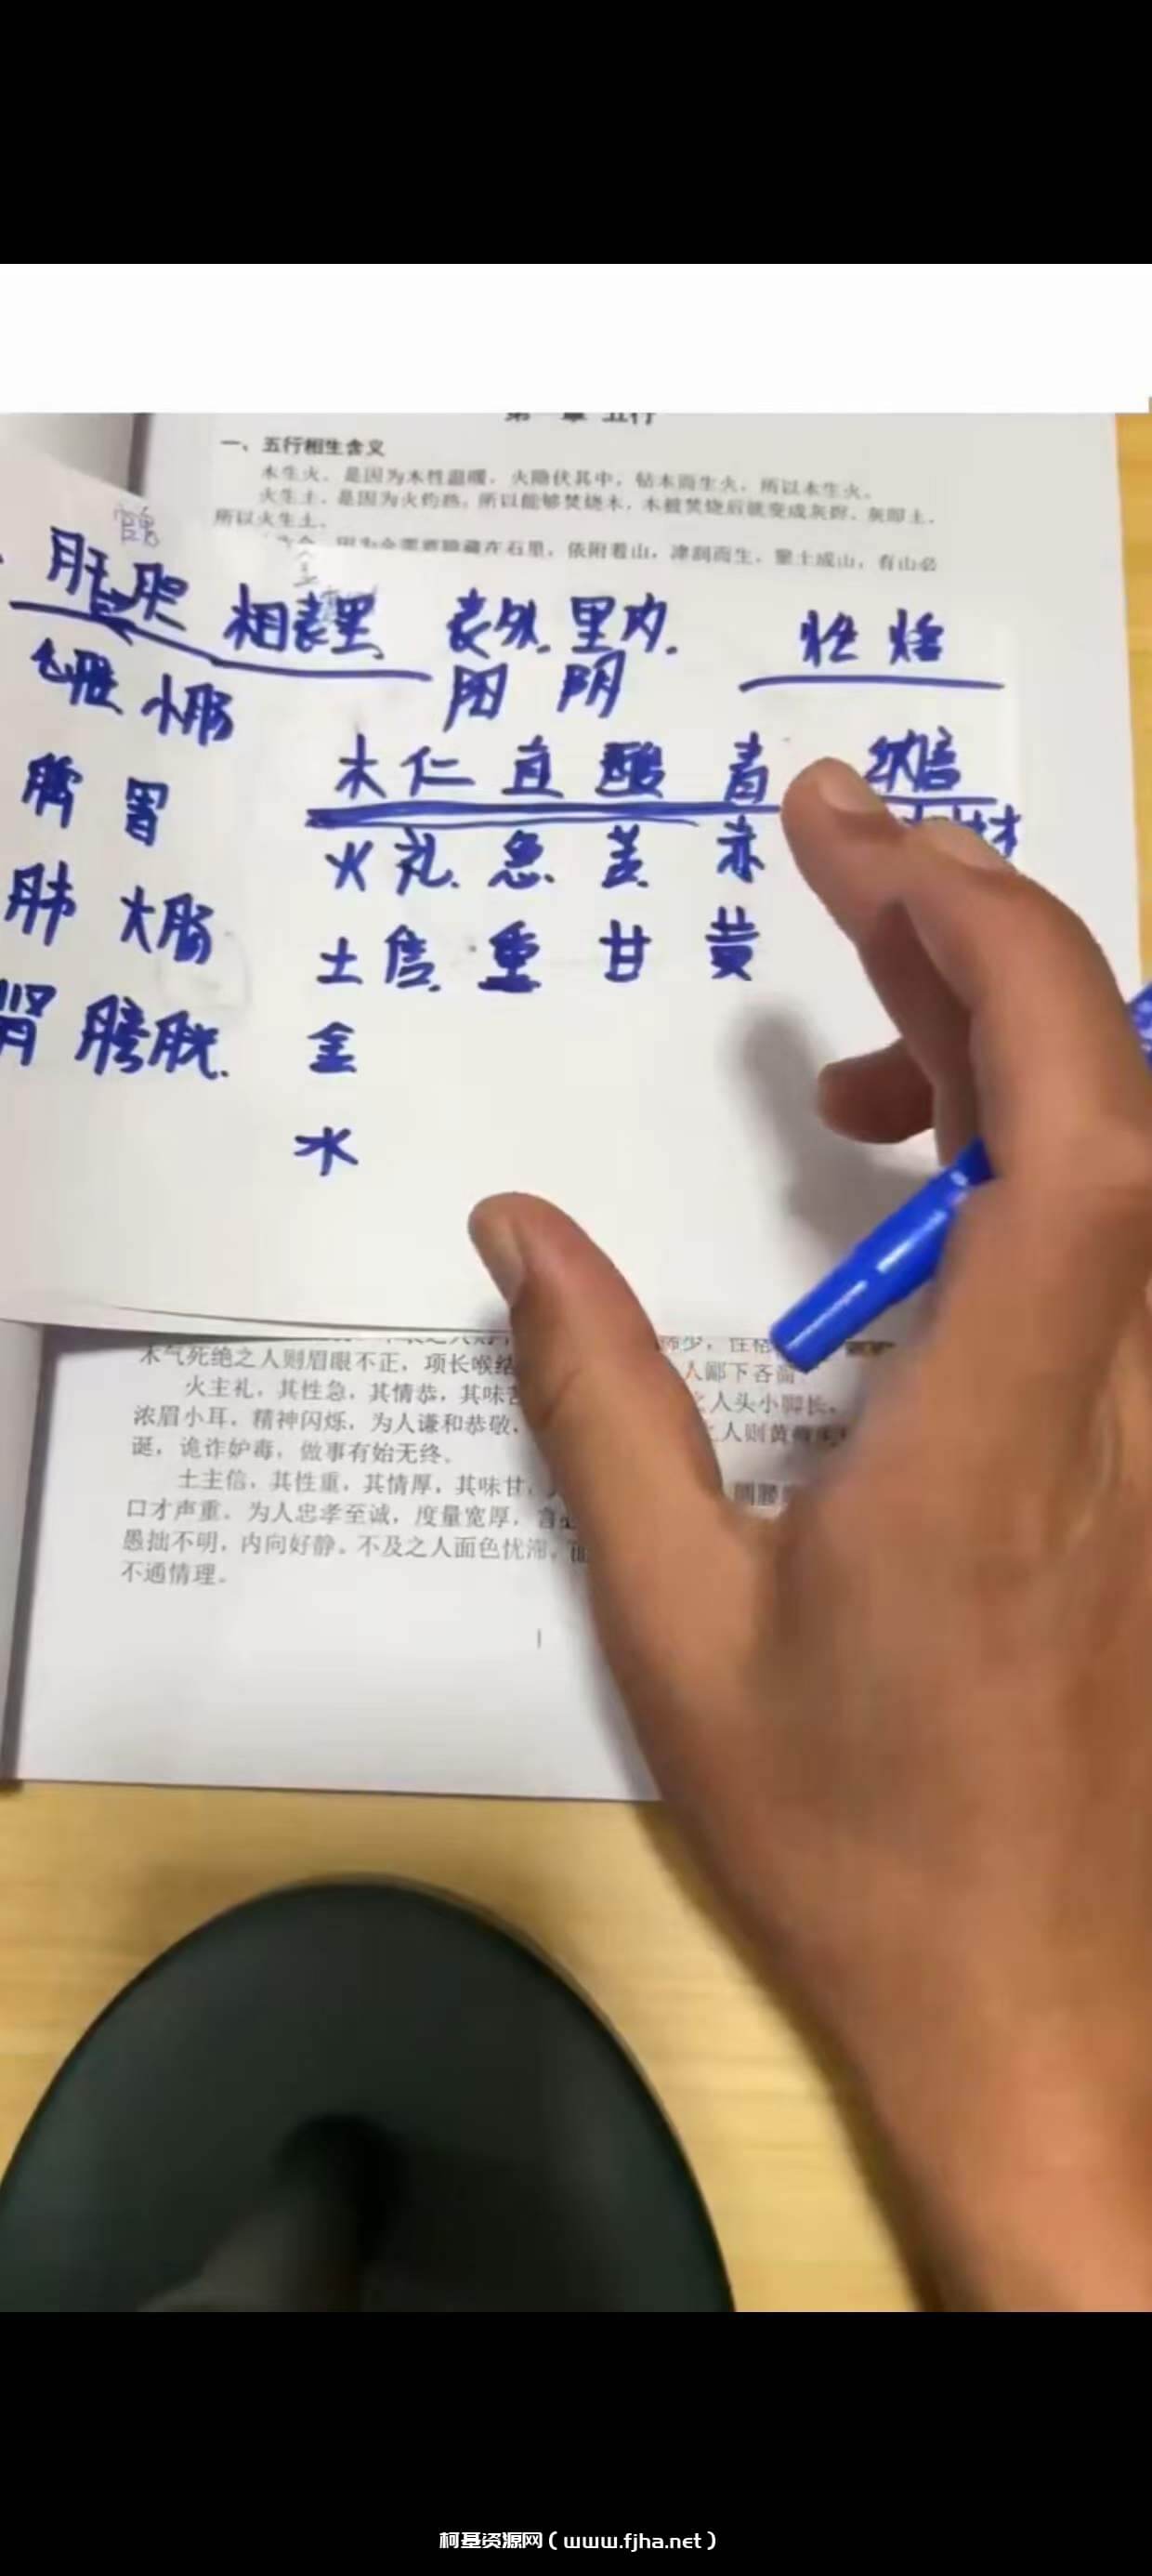 一、五行相生含义
木生火，是因为木性温暖，火隐伏其中，钻木而生火，所以木生火。
火生土，是因为火灼热，所以能够焚烧木，木被焚烧后就变成灰烬，灰即土，
所以火生土。
因为金需要隐藏在石里，依附着山，津润而生，聚土成山，有山必
肝胆 相表里 表外 里内
阳 阴
小肠
脾 胃
肺 大肠
肾 膀胱
木 仁 直 酸 青
火 礼 急 苦 赤
土 信 重 甘 黄
金
水
木气死绝之人则眉眼不正，项长喉结
人鄙下吝啬
火主礼，其性急，其情恭，其味苦
人头小脚长
浓眉小耳，精神闪烁，为人谦和恭敬，
人则黄
诞，诡诈妒毒，做事有始无终。
土主信，其性重，其情厚，其味甘，
口才声重。为人忠孝至诚，度量宽厚，言
愚拙不明，内向好静。不及之人面色忧滞，
不通情理。
柯基资源网（www.fjha.net）